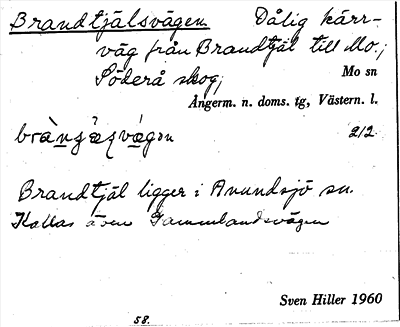 Brandtjälsvägen Dålig kärr-
väg från Brandtjäl till Mo;
Söderå skog; Mo sn
Ångerm. n. doms. tg, Västern. l.
2/2
Brandtjäl ligger i Anundsjö sn.
Kallas även Gammlandsvägen
Sven Hiller 1960
58.